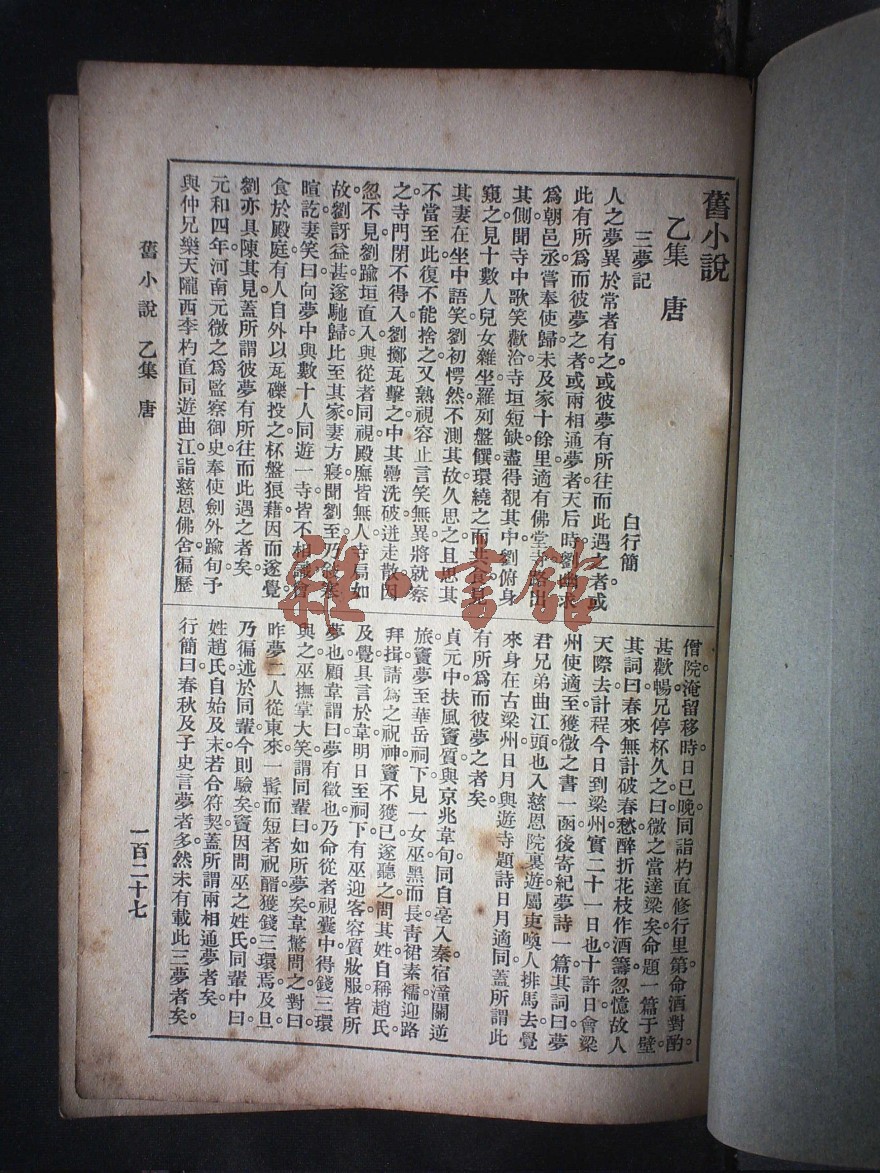 舊小說
乙集　唐
三夢記
白行簡
人之夢異於常者有之。或彼夢有所往而此遇之者或
此有所爲而彼夢之者或兩相通夢者天后時劉幽求
爲朝邑丞嘗奉使歸未及家十餘里適有佛堂寺路出
其側聞寺中歌笑歡洽寺垣短缺盡得覩其中劉俯身
窺之見十數人兒女雜坐羅列盤饌環繞之而共食見
其妻在坐中語笑劉初愕然不測其故久思之且思其
不當至此復不能捨之又熟視容止言笑無異將就察
之寺門閉不得入劉擲瓦擊之中其罍洗破迸走散因
忽不見劉踰垣直入與從者同視殿廡皆無人寺扃如
故劉訝益甚遂馳歸比至其家妻方寢聞劉至乃敘寒
暄訖妻笑曰向夢中與數十人同遊一寺皆不相識會
食於殿庭有人自外以瓦礫投之杯盤狼藉因而遂覺
劉亦具陳其見蓋所謂彼夢有所往而此遇之者矣
元和四年河南元微之爲監察御史奉使劍外踰旬予
與仲兄樂天隴西李杓直同遊曲江詣慈恩佛舍徧歷
僧院淹留移時日已晚同詣杓直修行里第命酒對酌
甚歡暢兄停杯久之曰微之當達梁矣命題一篇于壁
其詞曰春來無計破春愁醉折花枝作酒籌忽憶故人
天際去計程今日到梁州實二十一日也十許日會梁
州使適至獲微之書一函後寄紀夢詩一篇其詞曰夢
君兄弟曲江頭也入慈恩院裏遊屬吏喚人排馬去覺
來身在古梁州日月與遊寺題詩日月適同蓋所謂此
有所爲而彼夢之者矣
貞元中扶風竇質與京兆韋旬同自亳入秦宿潼關逆
旅竇夢至華岳祠下見一女巫黑而長青裙素襦迎路
拜揖請爲之祝神竇不獲已遂聽之問其姓自稱趙氏
及覺具言於韋明日至祠下有巫迎客容質妝服皆所
夢也顧韋謂曰夢有徵也乃命從者視囊中得錢三環
與之巫撫掌大笑謂同輩曰如所夢矣韋驚問之對曰
昨夢二人從東來一髯而短者祝醑獲錢三環焉及旦
乃徧述於同輩今則驗矣竇因問巫之姓氏同輩中曰
姓趙氏自始及末若合符契蓋所謂兩相通夢者矣
行簡曰春秋及子史言夢者多然未有載此三夢者矣。
舊小說　乙集　唐
一百二十七
雜·書館